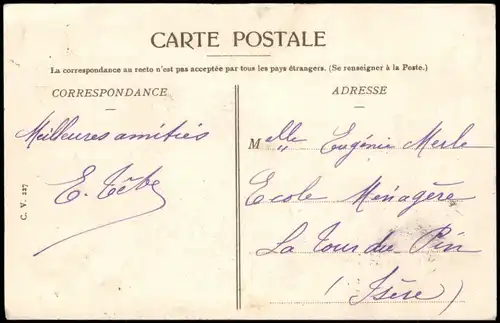 CARTE POSTALE
La correspondance au recto n'est pas acceptée par tous les pays étrangers. (Se renseigner à la Poste.)
CORRESPONDANCE
Meilleures amitiés
C. V. 227
ADRESSE
Melle Eugénie Merle
Ecole Ménagère
La Tour du Pin
(Isère)